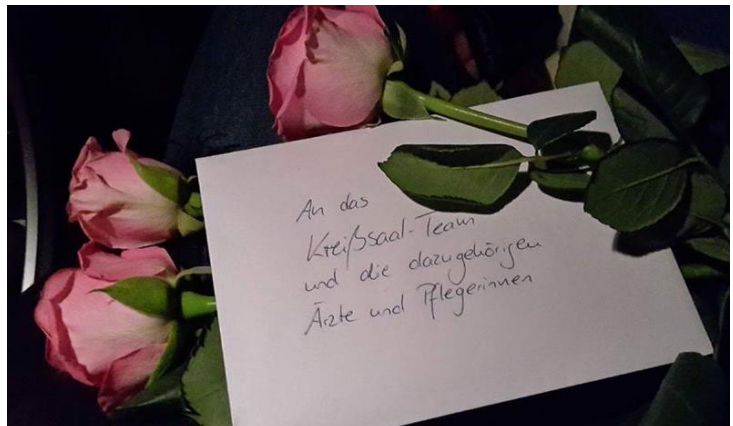 An das
Kreißsaal-Team
und die dazugehörigen
Ärzte und Pflegerinnen